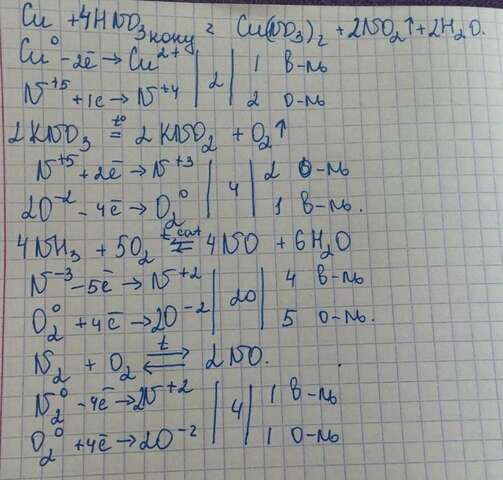 Cu + 4HNO₃ конц = Cu(NO₃)₂ + 2NO₂↑ + 2H₂O.
Cu⁰ - 2ē → Cu²⁺ | 2 | 1 в-ль
N⁺⁵ + 1ē → N⁺⁴ | 2 о-ль
2KNO₃ =t°= 2KNO₂ + O₂↑
N⁺⁵ + 2ē → N⁺³ | 4 | 2 о-ль
2O⁻² - 4ē → O₂⁰ | 1 в-ль.
4NH₃ + 5O₂ ⇄ t, cat 4NO + 6H₂O
N⁻³ - 5ē → N⁺² | 20 | 4 в-ль
O₂⁰ + 4ē → 2O⁻² | 5 о-ль.
N₂ + O₂ ⇄ t 2NO.
N₂⁰ - 4ē → 2N⁺² | 4 | 1 в-ль
O₂⁰ + 4ē → 2O⁻² | 1 о-ль